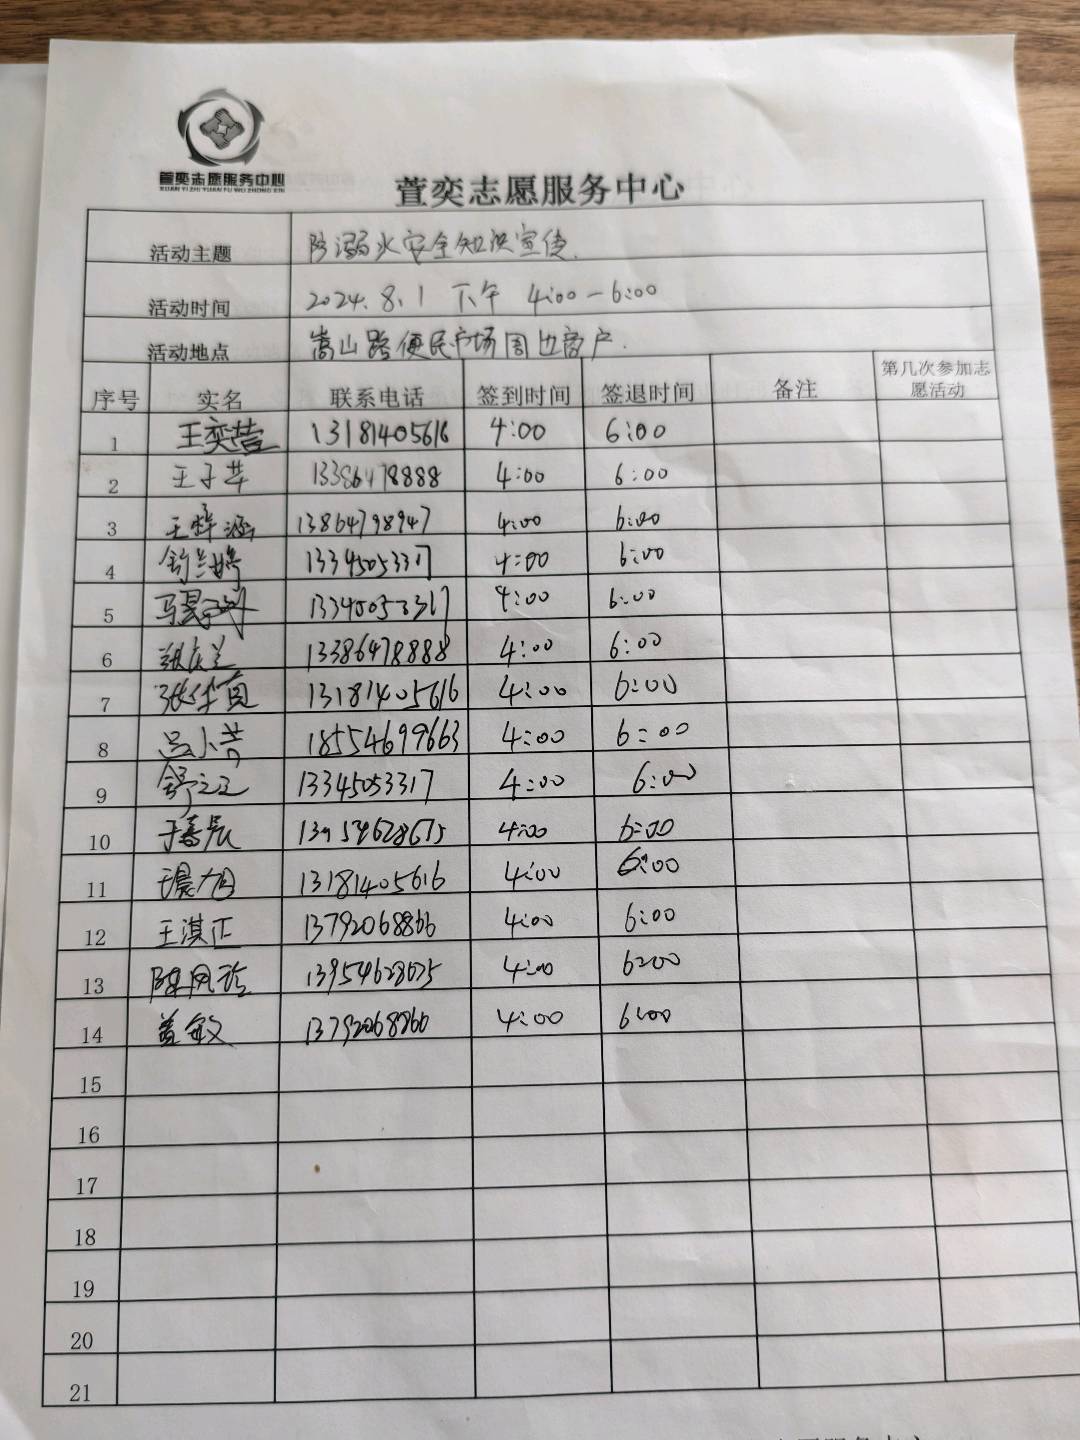 萱奕志愿服务中心
XUAN YI ZHI YUAN FU WU ZHONG XIN
萱奕志愿服务中心
活动主题 防溺水安全知识宣传.
活动时间 2024.8.1 下午 4:00-6:00
活动地点 嵩山路便民市场周边商户.
序号 实名 联系电话 签到时间 签退时间 备注 第几次参加志愿活动
1 王奕营 13181405616 4:00 6:00
2 王子苹 13386478888 4:00 6:00
3 王梓涵 13864798947 4:00 6:00
4 13345053317 4:00 6:00
5 13345053317 4:00 6:00
6 13386478888 4:00 6:00
7 13181405616 4:00 6:00
8 吕小芳 18554699663 4:00 6:00
9 13345053317 4:00 6:00
10 于嘉辰 13954628675 4:00 6:00
11 13181405616 4:00 6:00
12 王淇正 13792068866 4:00 6:00
13 13954628675 4:00 6:00
14 盖敏 4:00 6:00
15
16
17
18
19
20
21